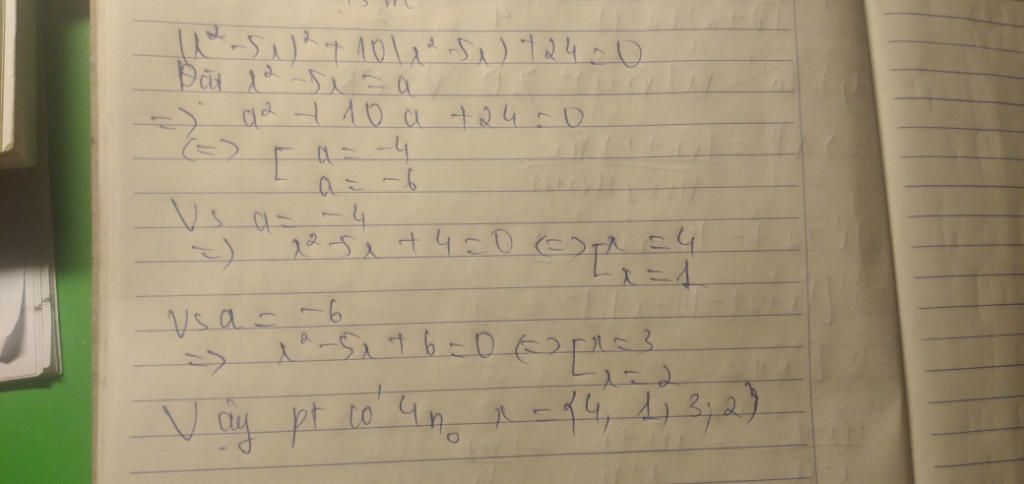 (x² - 5x)² + 10(x² - 5x) + 24 = 0
Đặt x² - 5x = a
=> a² + 10a + 24 = 0
(=> [ a = -4
a = -6
Vs a = -4
=> x² - 5x + 4 = 0 (=> [ x = 4
x = 1
Vs a = -6
=> x² - 5x + 6 = 0 (=> [ x = 3
x = 2
Vậy pt có 4 n₀ x = {4; 1; 3; 2}